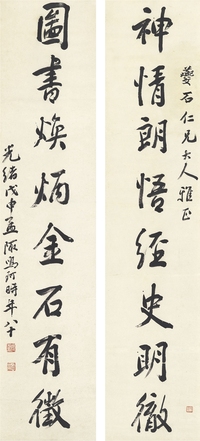 神情朗悟經史明徹
夔石仁兄大人雅正
圖書煥炳金石有徵
光緒戊申孟陬鳴珂時年八十